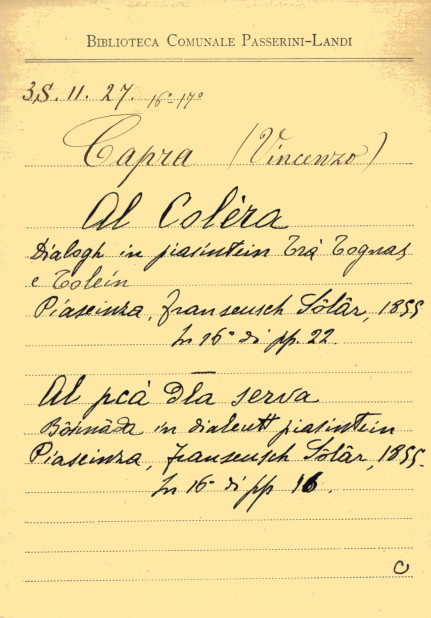 BIBLIOTECA COMUNALE PASSERINI-LANDI
3S. 11. 27. 16º-17º
Capra (Vincenzo)
Al Colèra
Dialogh in piasintein trà Tognas
e Tolein
Piaseinza, Franseusch Sôlâr, 1855
In 16º di pp. 22.
Al pcá dla serva
in dialett piasintein
Piaseinza, Franseusch Sôlâr, 1855.
In 16º di pp 16.
C